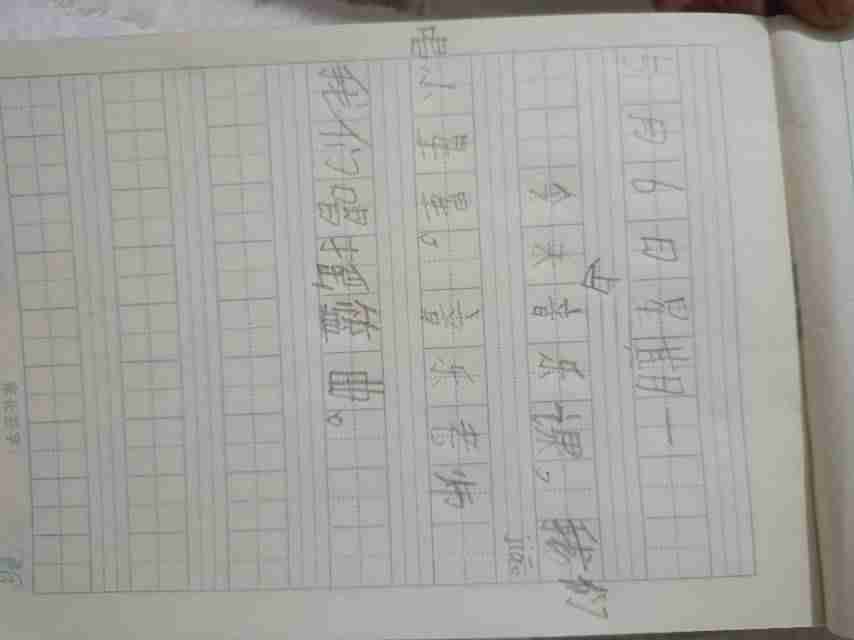 六月6日星期一
今天上音乐课,我们
唱小星星。音乐老师
jiāo
我们唱摇篮曲。